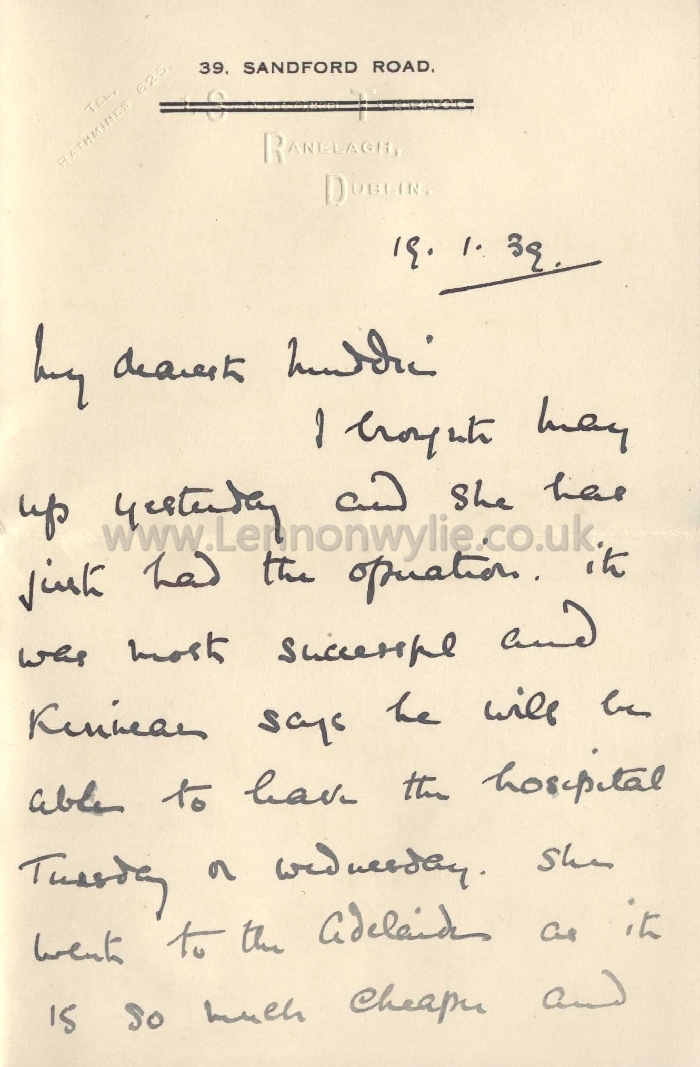 39, SANDFORD ROAD.
TEL.
RATHMINES 626.
RANELAGH,
DUBLIN.
19. 1. 39.
My dearest Muddie
I brought May
up yesterday and she has
just had the operation. it
was most successful and
says he will be
able to leave the hospital
Tuesday or Wednesday. She
went to the Adelaide as it
is so much cheaper and
www.Lennonwylie.co.uk